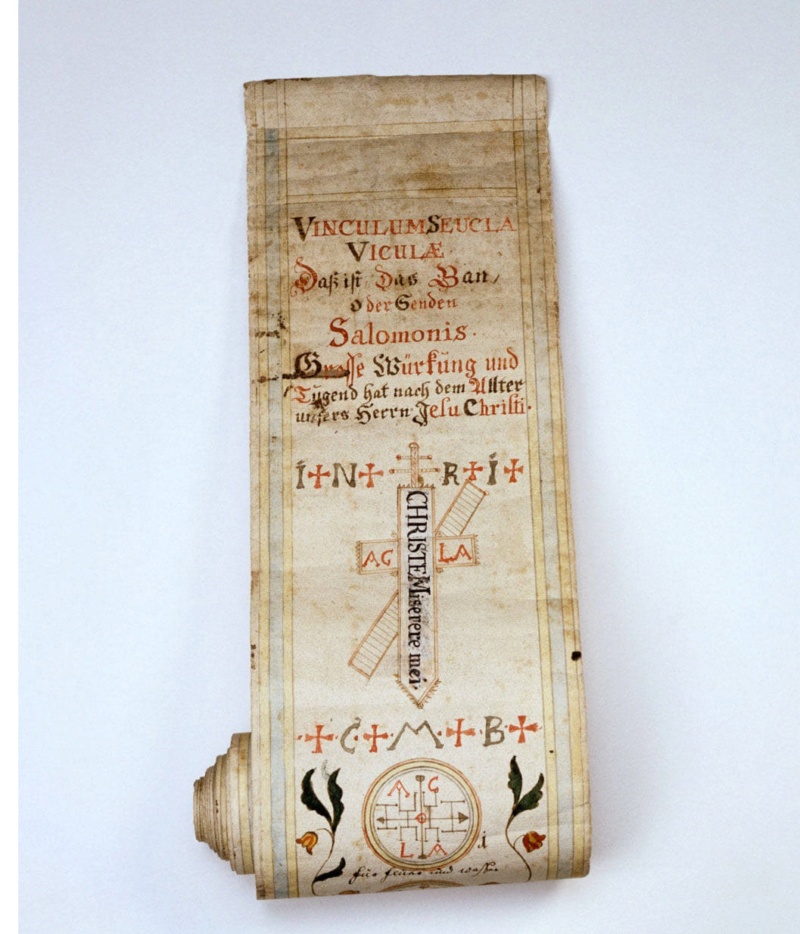 VINCULUM SEU CLA
VICULÆ
Daß ist Das Ban,
oder Senden
Salomonis.
Grosse Würkung und
Tugend hat nach dem Allter
unsers Herrn Jesu Christi.
I+N+ R+I+
CHRISTE Miserere mei.
AG LA
+C+M+B+
A G
L A
für feuer und wasser